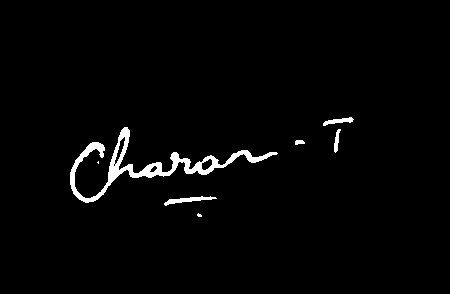 Charan - T